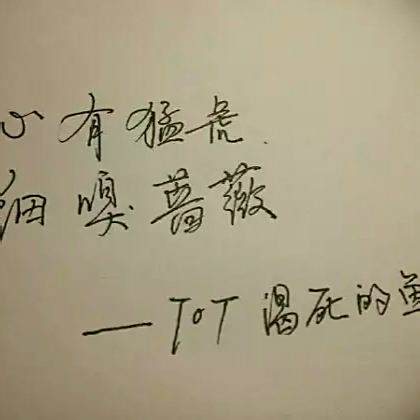 心有猛虎
细嗅蔷薇
——ToT 渴死的鱼